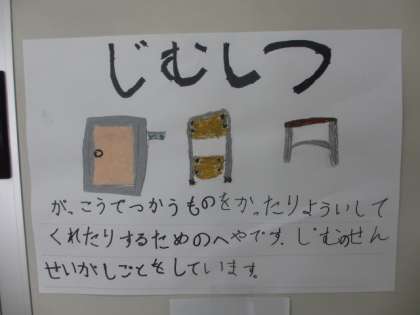 じむしつ
が、こうでつかうものをかったりよういして
くれたりするためのへやです。じむのせん
せいがしごとをしています。